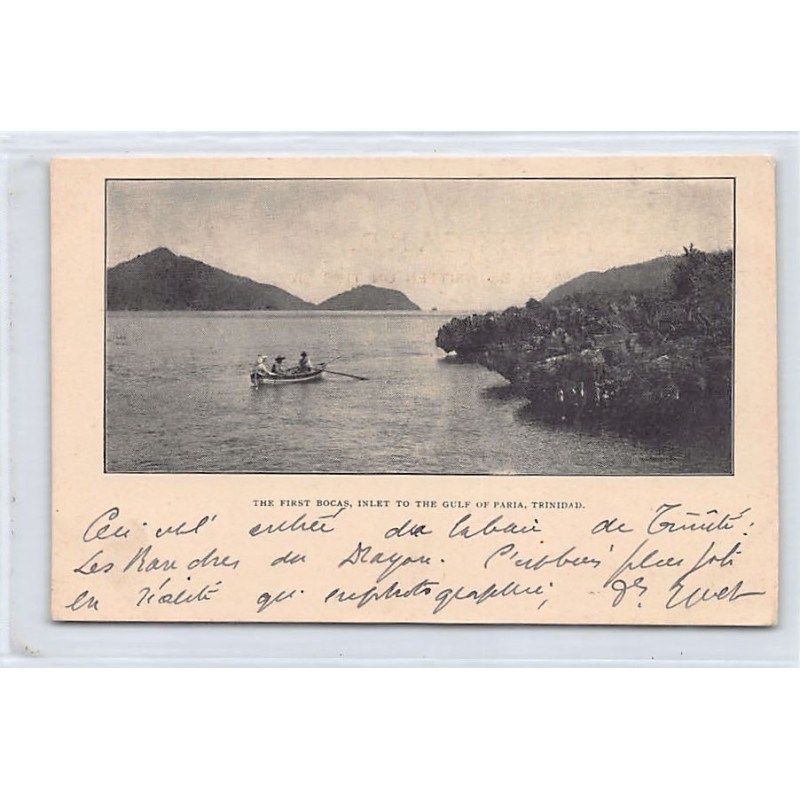 THE FIRST BOCAS, INLET TO THE GULF OF PARIA, TRINIDAD.
Ceci est entrée de la baie de Trinité:
Les Bouches du Dragon. C'est plus joli
en réalité qu'en photographie,